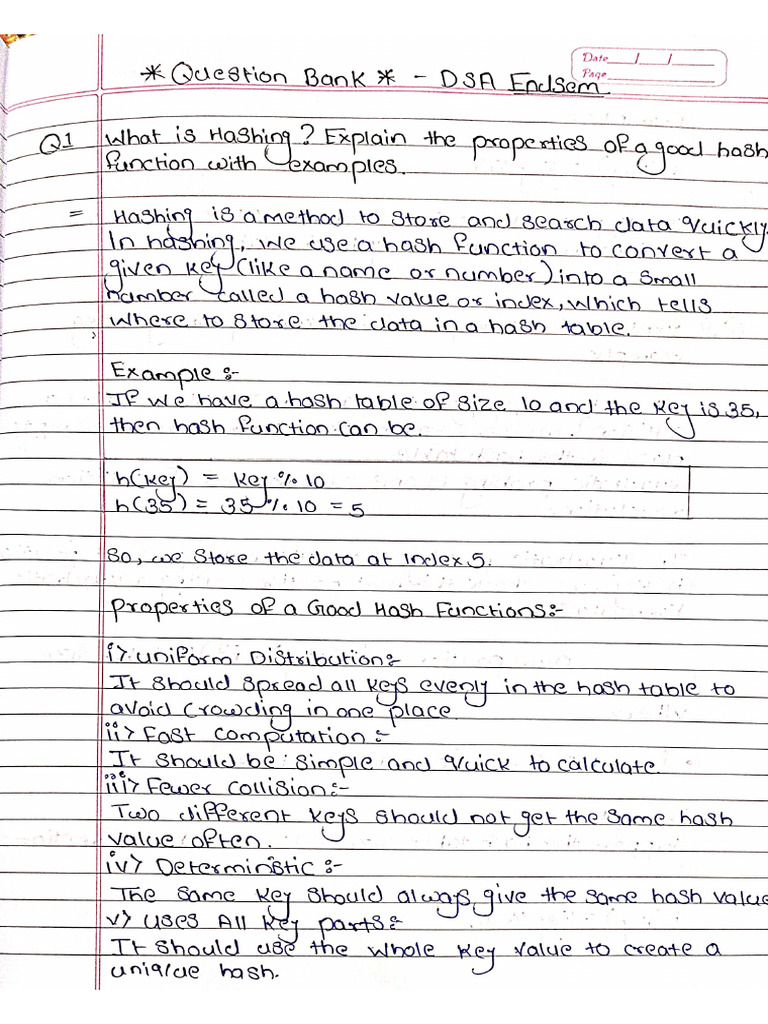 Date __/__/__
Page
* Question Bank * - DSA Endsem
Q1 What is Hashing? Explain the properties of a good hash
function with examples.
= Hashing is a method to store and search data quickly.
In hashing, we use a hash function to convert a
given key (like a name or number) into a small
number called a hash value or index, which tells
where to store the data in a hash table.
Example :-
If we have a hash table of size 10 and the key is 35,
then hash function can be.
h(key) = key % 10
h(35) = 35 % 10 = 5
So, we store the data at index 5.
Properties of a Good Hash Functions:-
i> Uniform Distribution:-
It should spread all keys evenly in the hash table to
avoid crowding in one place
ii> Fast computation :-
It should be simple and quick to calculate.
iii> Fewer Collision:-
Two different keys should not get the same hash
value often.
iv> Deterministic :-
The same key should always give the same hash value
v> Uses All key parts:-
It should use the whole key value to create a
unique hash.